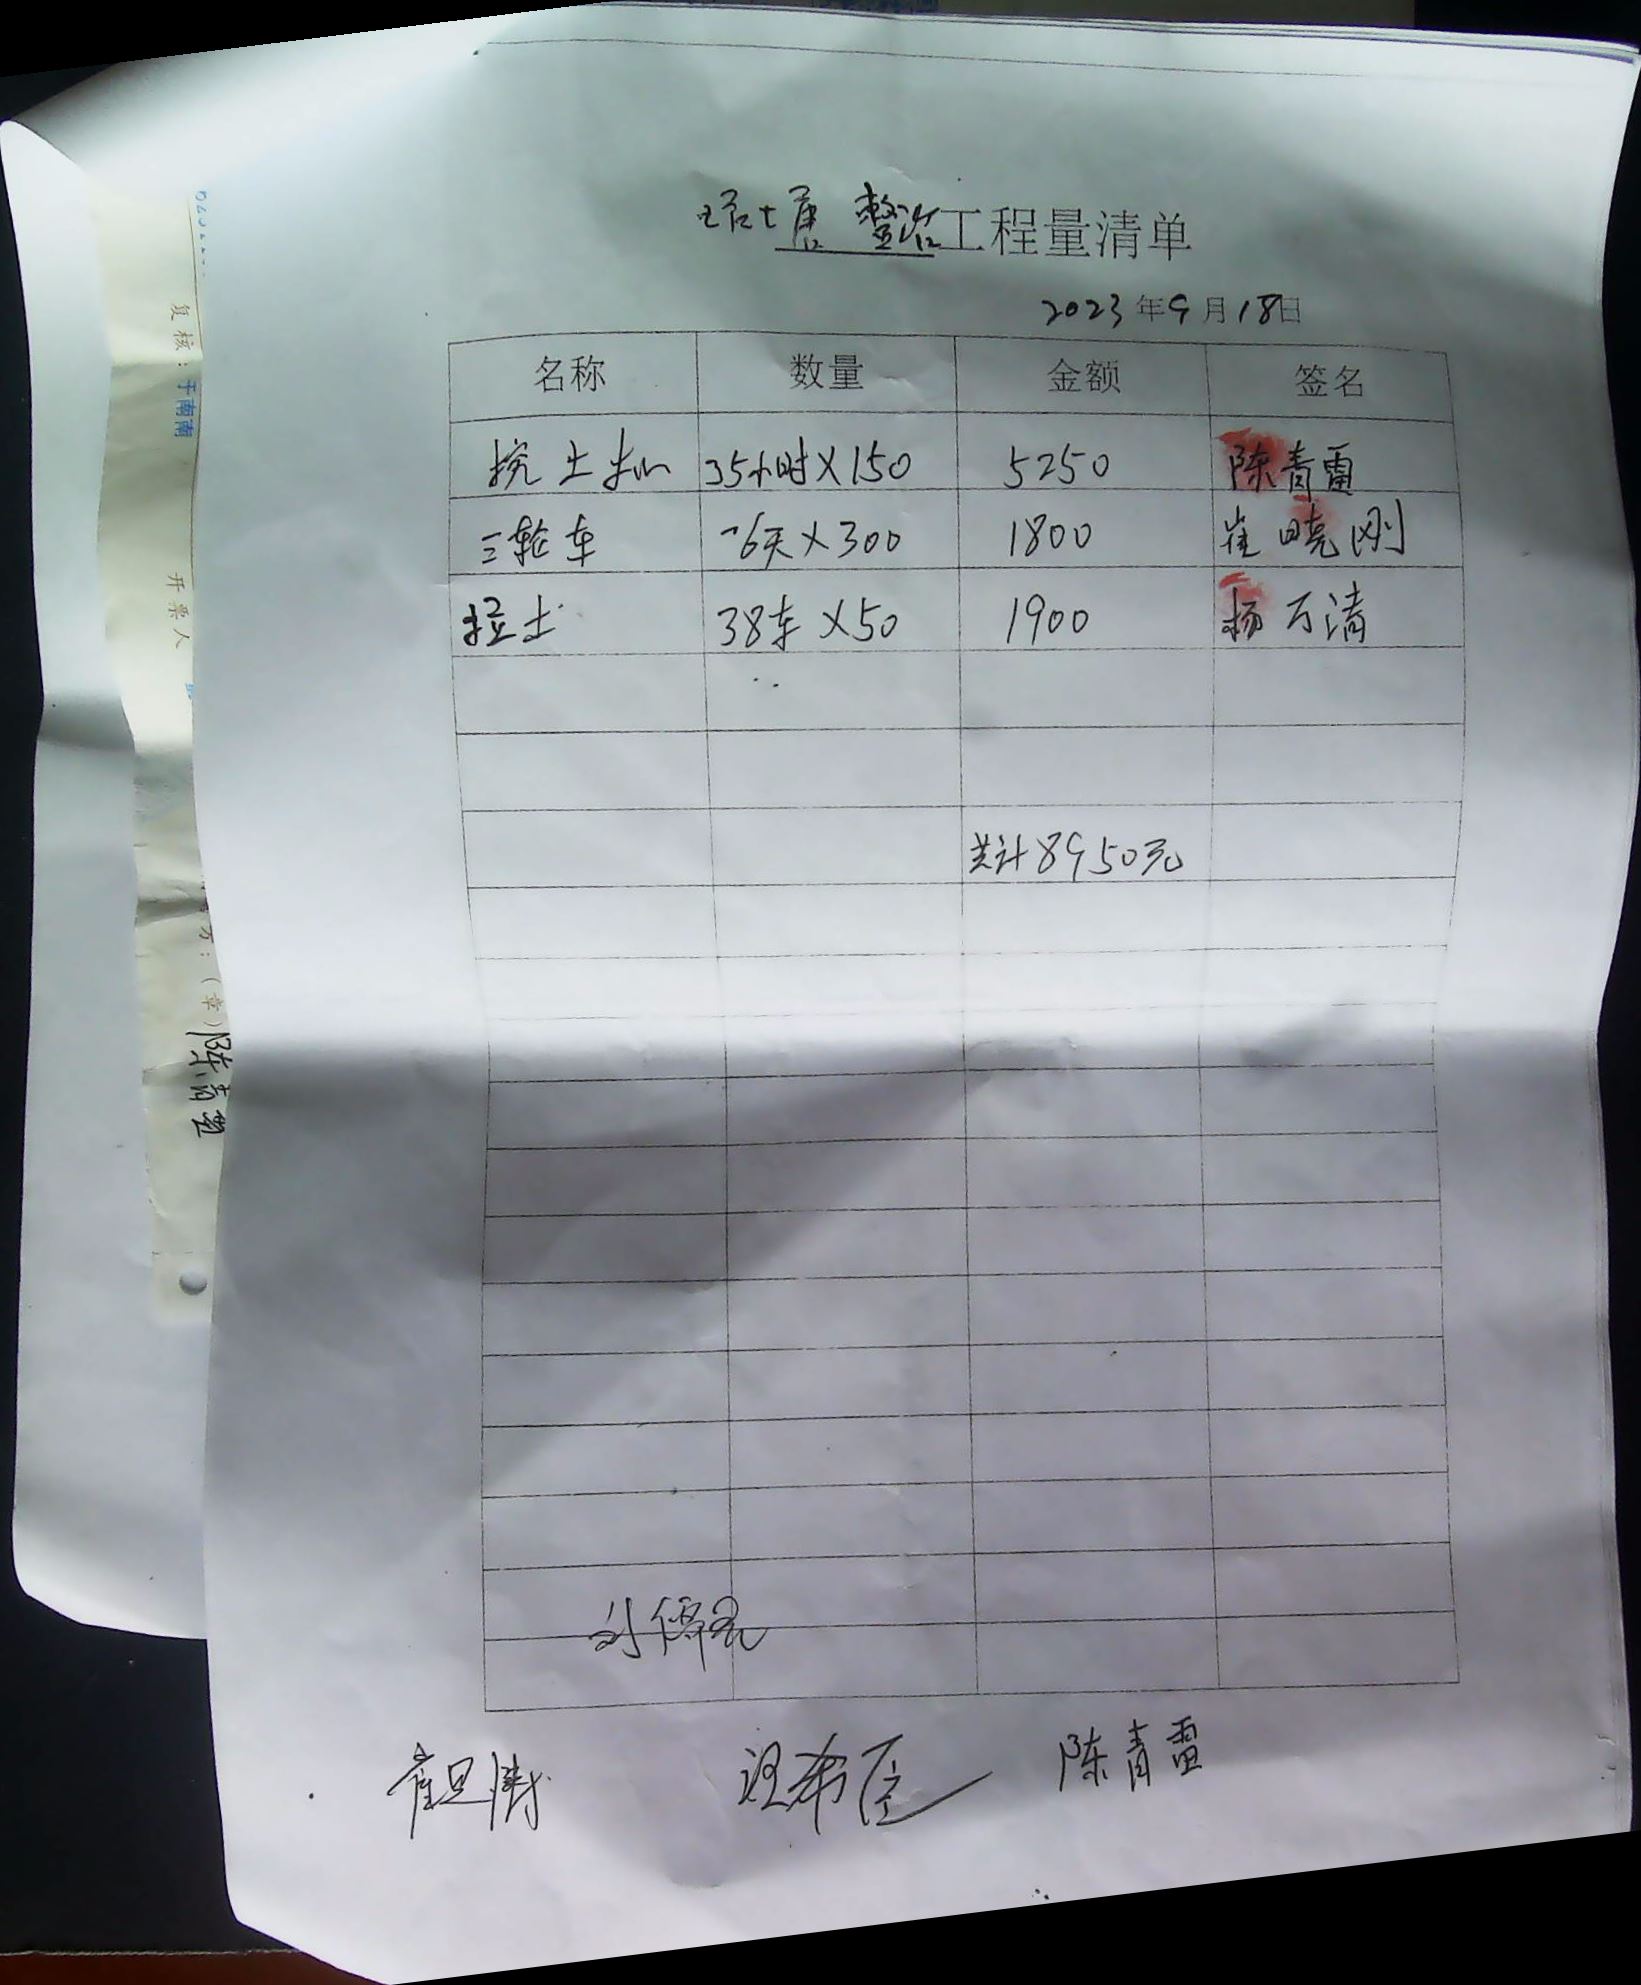 整治工程量清单
2023年9月18日
名称 数量 金额 签名
挖土机 35小时×150 5250 陈青雷
三轮车 6天×300 1800 崔晓刚
拉土 38车×50 1900 杨万清
共计8950元
陈青雷
复核：于南南
开票人
方：(章)陈青雷